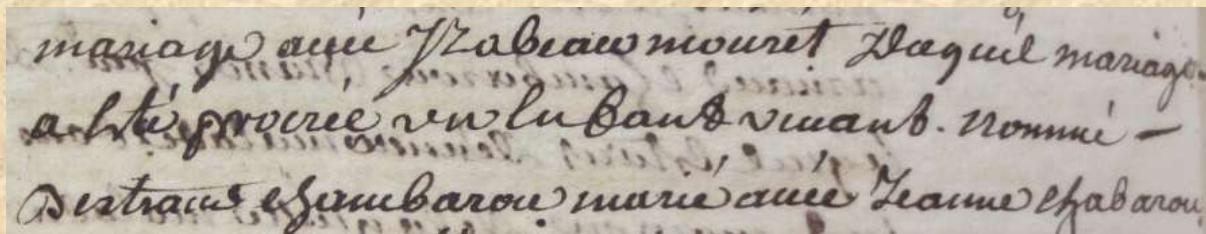 mariage avec Yzabeau mouret Duquel mariage
a Esté procréé un Enfant vivant. nommé -
Bertrand Chambarou marié avec Jeanne Chabarou